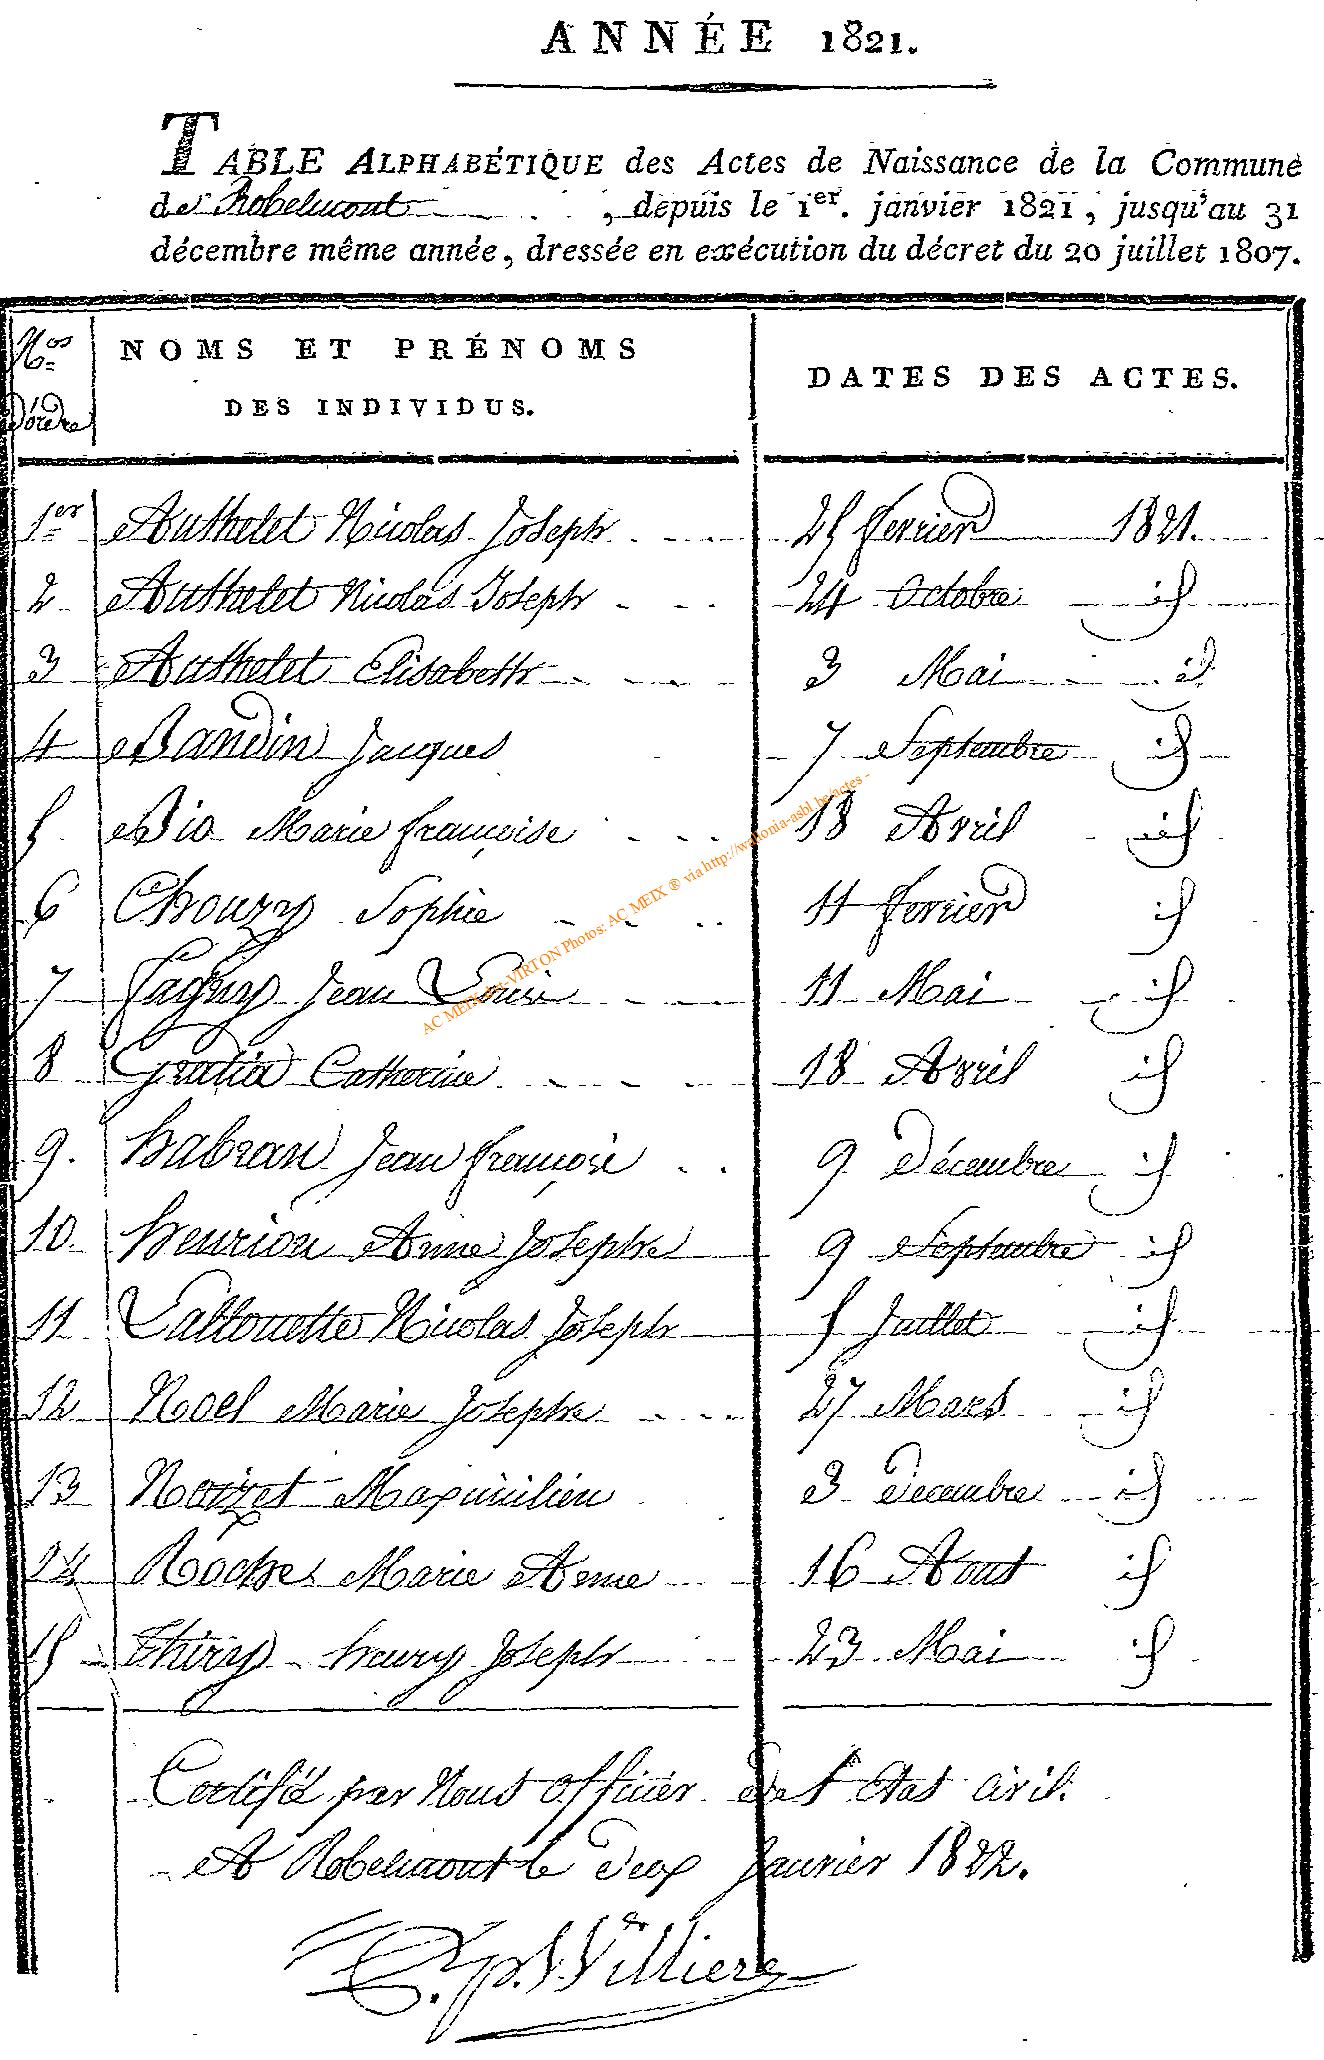 ANNÉE 1821.
TABLE ALPHABÉTIQUE des Actes de Naissance de la Commune
de Robelmont, depuis le 1er. janvier 1821, jusqu'au 31
décembre même année, dressée en exécution du décret du 20 juillet 1807.
Nos d'ordre NOMS ET PRÉNOMS DES INDIVIDUS. DATES DES ACTES.
1er Authelet Nicolas Joseph 25 fevrier 1821.
2 Authelet Nicolas Joseph 24 Octobre id
3 Authelet Elisabeth 3 Mai id
4 Bandin Jacques 7 Septembre id
5 Bio Marie françoise 18 Avril id
6 Chouzy Sophie 11 fevrier id
7 Fagny Jean Louis 11 Mai id
8 Gratia Catherine 18 Avril id
9. habran Jean françois 9 Décembre id
10 henrion Anne Josephe 9 Septembre id
11 Lallouette Nicolas Joseph 5 Juillet id
12 Noel Marie Josephe 27 Mars id
13 Noizet Maximilien 3 décembre id
14 Roche Marie Anne 16 Aout id
15 Thiry henry Joseph 23 Mai id
Certifié par Nous officier de l'etat civil.
A Robelmont le deux Janvier 1822.
Villiere
AC MEIX-dvt-VIRTON Photos: AC MEIX ® via http://wallonia-asbl.be/actes -